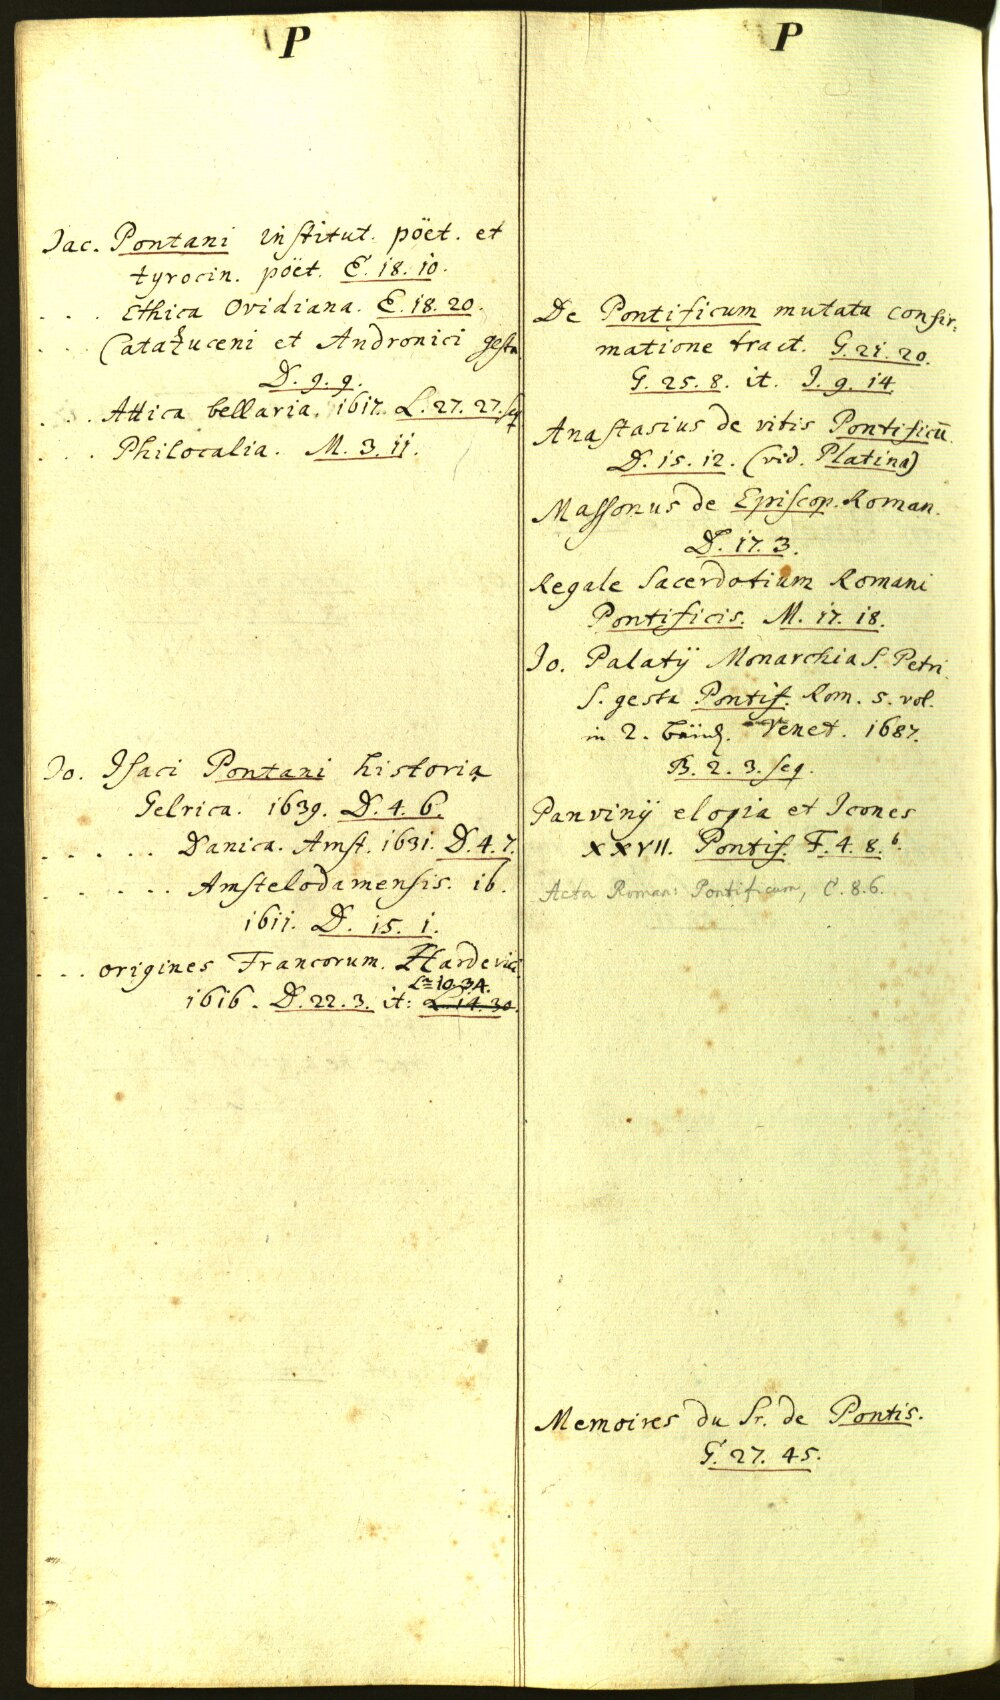 P
Jac. Pontani institut. pöet. et
tyrocin. pöet. E. 18. 10.
. . . Ethica Ovidiana. E. 18. 20.
. . . Catazuceni et Andronici gesta
D. 9. 9.
. . . Attica bellaria. 1617. L. 27. 27. seq
. . . Philocalia. M. 3. 11.
Jo. Isaci Pontani historia
Gelrica. 1639. D. 4. 6.
. . . . . Danica. Amst. 1631. D. 4. 7.
. . . . . Amstelodamensis. ib.
1611. D. 15. 1.
. . . origines Francorum. Hardevic.
L. 10. 34.
1616. D. 22. 3. it: L. 14. 30.
P
De Pontificum mutata confir-
matione tract. G. 21. 20.
G. 25. 8. it. J. 9. 14.
Anastasius de vitis Pontificū
D. 15. 12. (vid. Platina)
Massonus de Episcop. Roman.
D. 17. 3.
Regale Sacerdotium Romani
Pontificis. M. 17. 18.
Jo. Palatij Monarchia S. Petri
S. gesta Pontif. Rom. 5. vol.
in 2. Venet. 1687.
B. 2. 3. seq.
Panvinij elogia et Icones
XXVII. Pontif. F. 4. 8. b.
Acta Roman: Pontificum, C. 8. 6.
Memoires du Sr. de Pontis.
G. 27. 45.